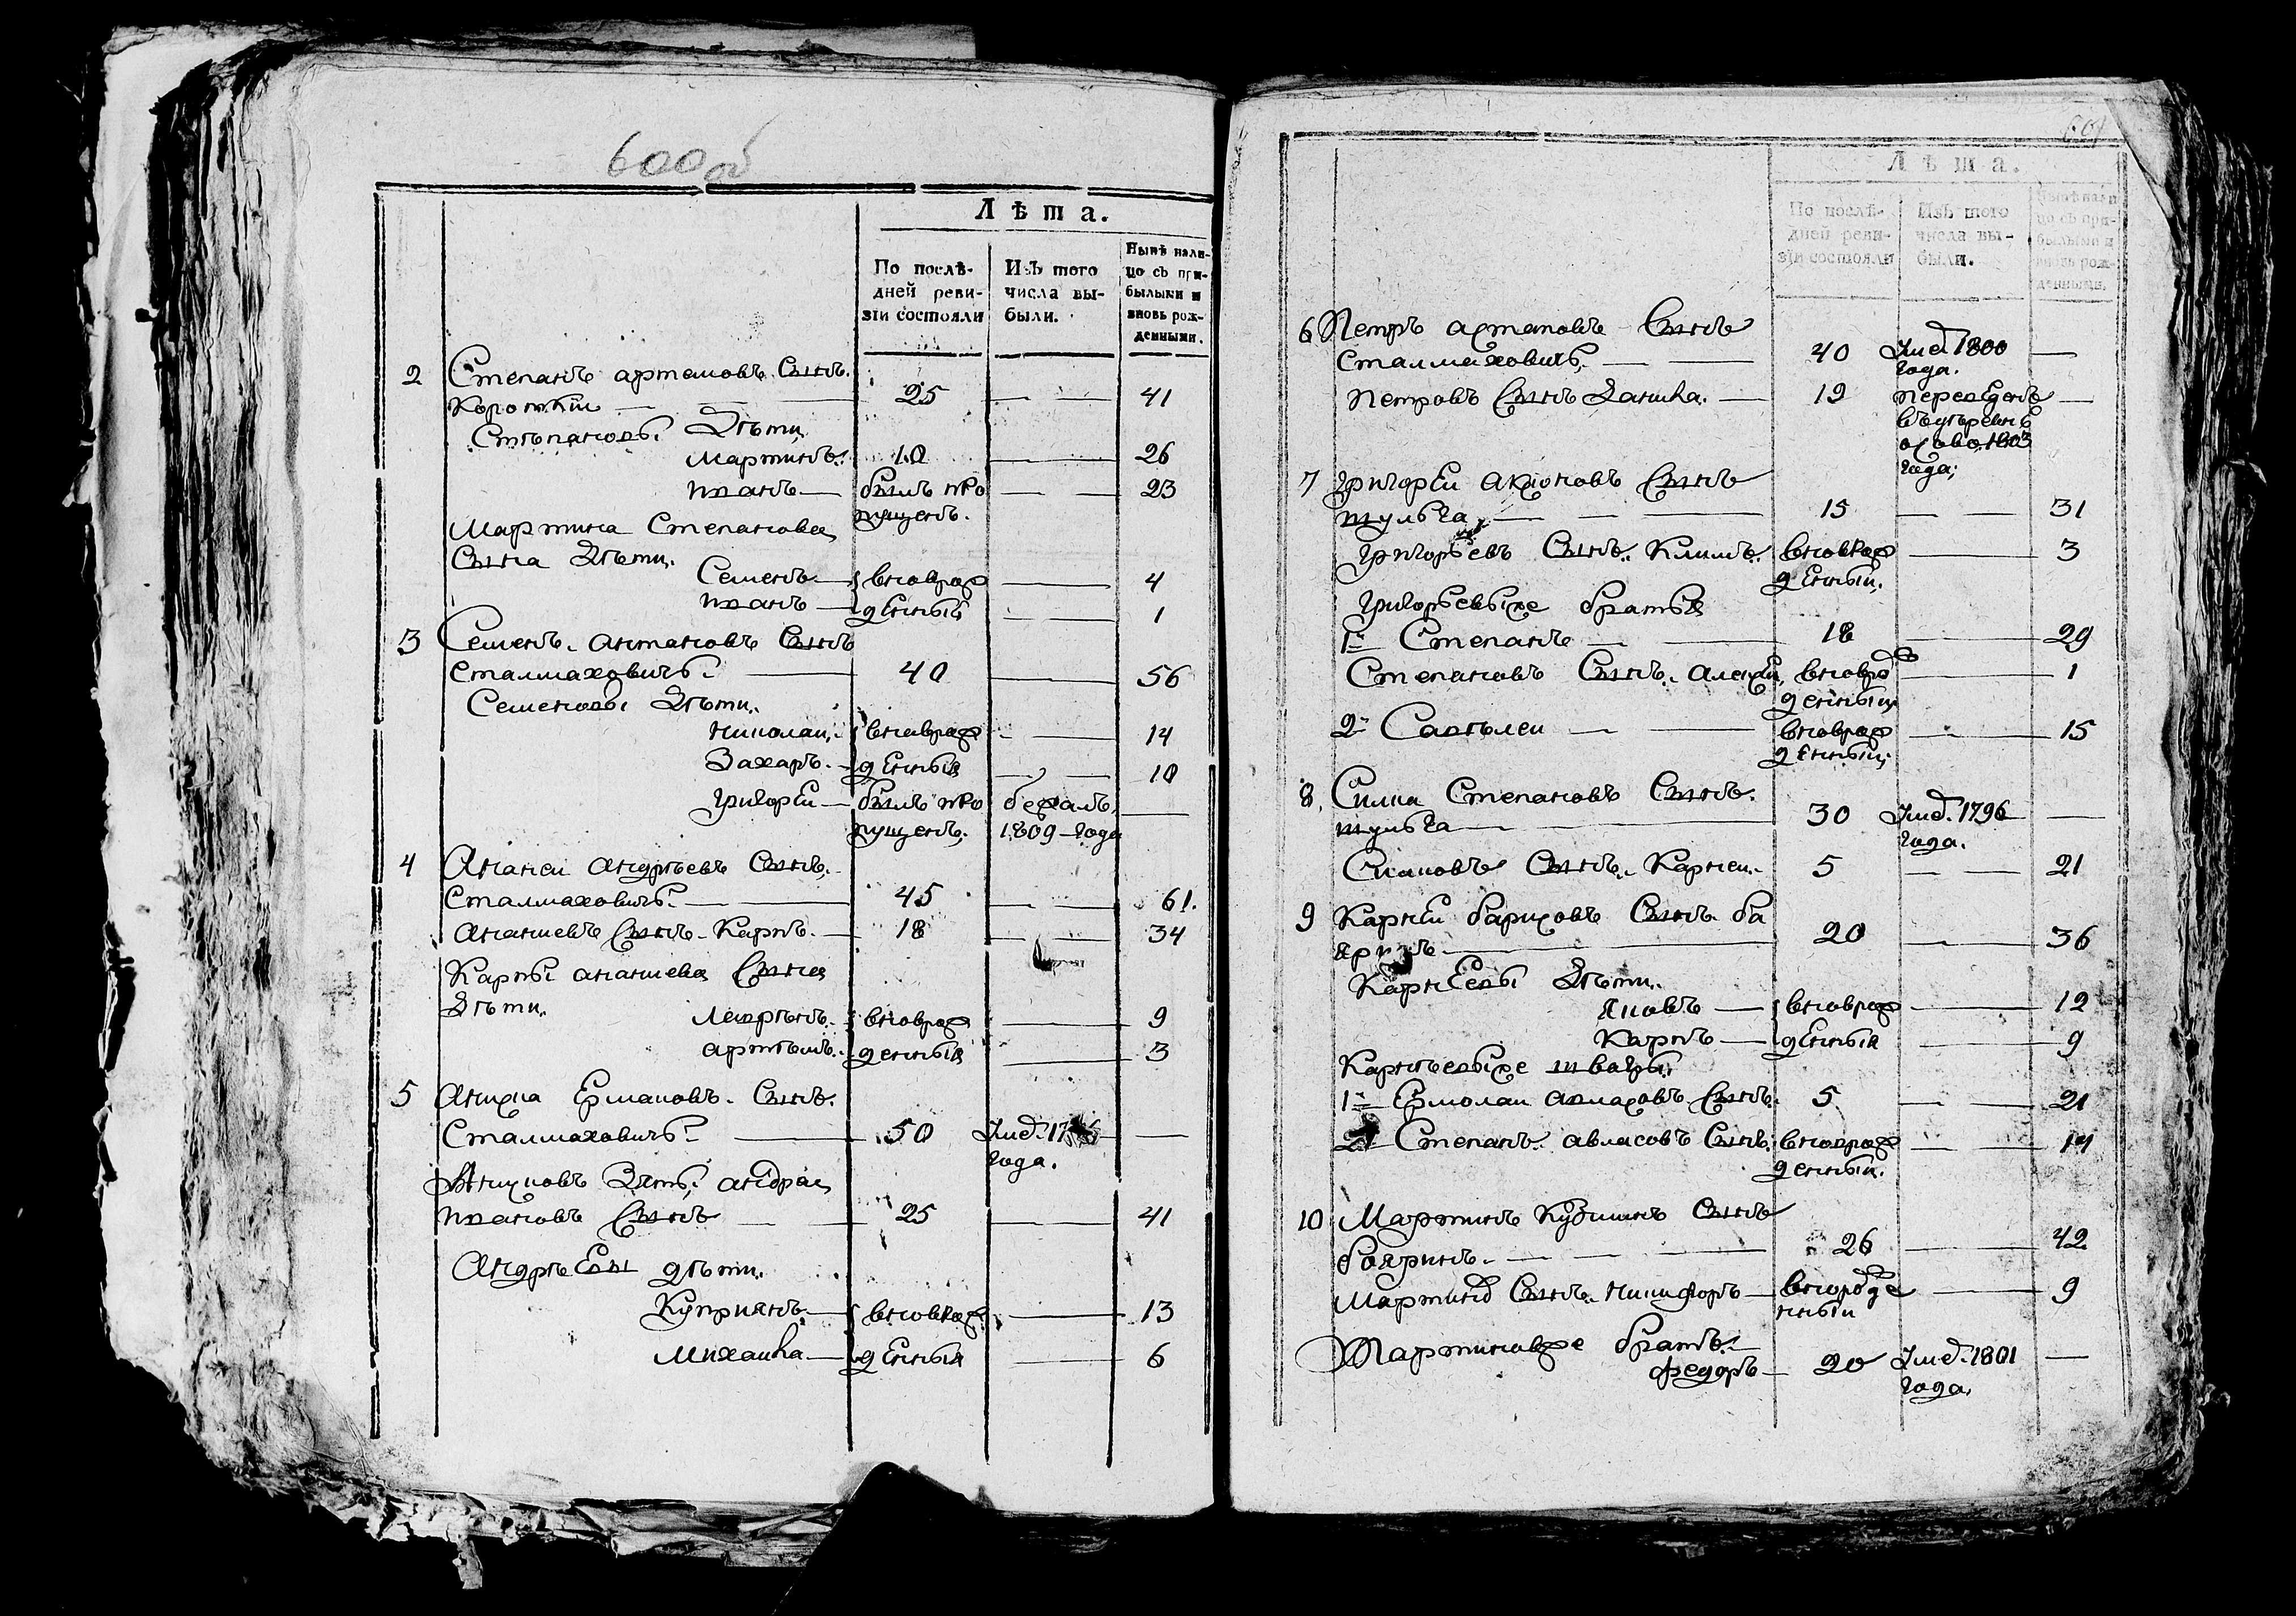 600 об
Лѣта.
По послѣ-
дней реви-
зіи состояли
Изъ того
числа вы-
были.
Нынѣ нали-
цо съ при-
былыми и
вновь рож-
денными.
2 Степанъ артемовъ Сынъ
Короткїи — 25 — 41
Степановы Дѣти
Мартинъ 10 — 26
иванъ — былъ про — 23
пущенъ.
Мартина Степанова
Сына Дѣти.
Семенъ — вновьрож — 4
иванъ — денный — 1
3 Семенъ антановъ Сынъ
Сталмаховичь 40 — 56
Семеновы Дѣти
николаи вновьрож — 14
Захаръ денныя — 10
григореи — былъ про бежалъ —
пущенъ. 1809 года
4 Ананеи андрѣевъ Сынъ
Сталмаховичь — 45 — 61.
Ананиевъ Сынъ Карпъ. 18 — 34
Карпы ананиева Сына
Дѣти. вновьрож — 9
артѣмъ денныя — 3
5 Ермаковъ Сынъ
Сталмаховичь 50 Умѣ. 17 —
года.
Зять андреи
ивановъ Сынъ — 25 — 41
Андрѣевы дѣти.
Куприянъ — вновьрож — 13
Михаила — денныя — 6
601
Лѣта.
По послѣ-
дней реви-
зіи состояли
Изъ того
числа вы-
были.
Нынѣ нали
цо съ при-
былыми и
вновь рож-
денными.
6 Петръ астаповъ Сынъ
Сталмаховичь — 40 Умѣ. 1800 —
года.
Петровъ Сынъ Данила. — 19 переведенъ —
1803
года;
7 григореи Сынъ
шульга — 15 — 31
григорьевъ Сынъ Климъ вновьрож — 3
денный.
григорьевыхе братья
1й Степанъ — 18 — 29
Степановъ Сынъ алексѣи вноврож — 1
денный
2й Савѣлеи — вновьрож — 15
денный;
8. Силиа Степановъ Сынъ.
шульга — 30 Умѣ. 1796 —
года.
Сынъ Карнеи. 5 — 21
9 Карнеи барисовъ Сынъ ба
яринъ — 20 — 36
Карнеевы Дѣти.
Яковъ — вновьрож — 12
Карпъ — денныя — 9
Карнѣевыхе швагры:
1й Ермолаи Сынъ 5 — 21
2й Степанъ авласовъ Сынъ вновьрож — 14
денный.
10 Мартинъ Кузминъ Сынъ
бояринъ — 26 — 42
Сынъ никифоръ — вноврожде — 9
нныи
братъ
федоръ — 20 Умѣ. 1801 —
года.